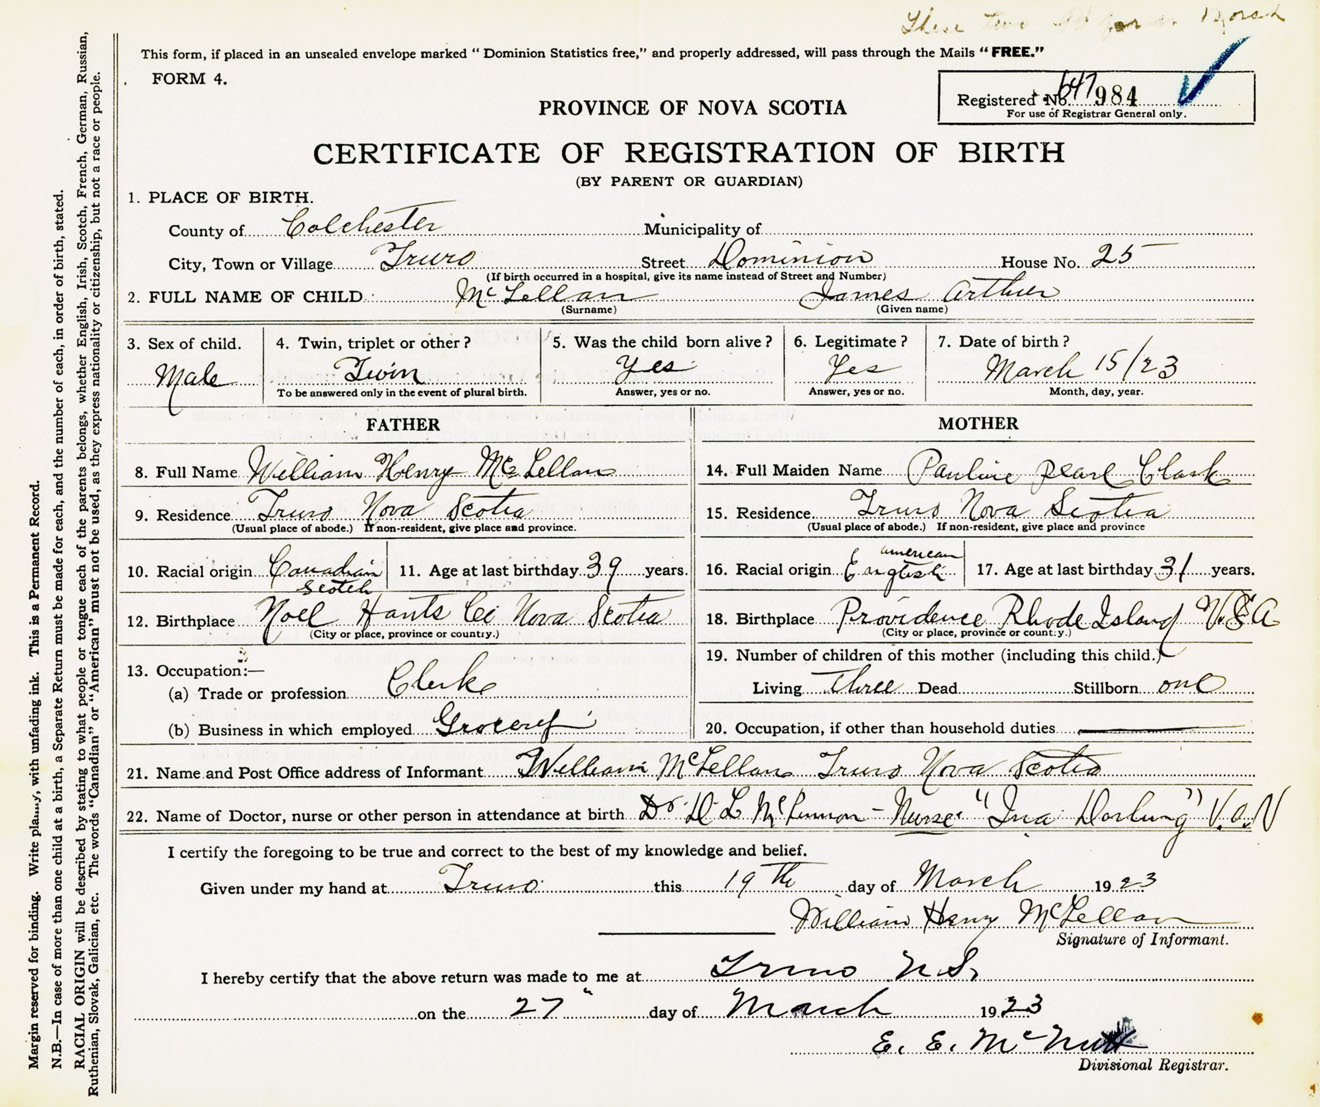 This form, if placed in an unsealed envelope marked "Dominion Statistics free," and properly addressed, will pass through the Mails "FREE."
FORM 4.
Registered No. 647 984
For use of Registrar General only.
PROVINCE OF NOVA SCOTIA
CERTIFICATE OF REGISTRATION OF BIRTH
(BY PARENT OR GUARDIAN)
1. PLACE OF BIRTH.
County of Colchester Municipality of
City, Town or Village Truro Street Dominion House No. 25
(If birth occurred in a hospital, give its name instead of Street and Number)
2. FULL NAME OF CHILD McLellan James Arthur
(Surname) (Given name)
3. Sex of child. 4. Twin, triplet or other? 5. Was the child born alive? 6. Legitimate? 7. Date of birth?
Male Twin Yes Yes March 15/23
To be answered only in the event of plural birth. Answer, yes or no. Answer, yes or no. Month, day, year.
FATHER MOTHER
8. Full Name William Henry McLellan 14. Full Maiden Name Pauline Pearl Clark
9. Residence Truro Nova Scotia 15. Residence Truro Nova Scotia
(Usual place of abode.) If non-resident, give place and province. (Usual place of abode.) If non-resident, give place and province
10. Racial origin Canadian Scotch 11. Age at last birthday 39 years. 16. Racial origin American English 17. Age at last birthday 31 years.
12. Birthplace Noel Hants Co Nova Scotia 18. Birthplace Providence Rhode Island U.S.A
(City or place, province or country.) (City or place, province or country.)
13. Occupation:— 19. Number of children of this mother (including this child.)
(a) Trade or profession Clerk Living Three Dead Stillborn one
(b) Business in which employed Grocery 20. Occupation, if other than household duties
21. Name and Post Office address of Informant William McLellan Truro Nova Scotia
22. Name of Doctor, nurse or other person in attendance at birth Dr. L. Nurse "Ina Darling" V.O.N
I certify the foregoing to be true and correct to the best of my knowledge and belief.
Given under my hand at Truro this 19th day of March 1923
William Henry McLellan
Signature of Informant.
I hereby certify that the above return was made to me at Truro N.S.
on the 27" day of March 1923
E. E. McNutt
Divisional Registrar.
Margin reserved for binding. Write plainly, with unfading ink. This is a Permanent Record.
N.B.—In case of more than one child at a birth, a Separate Return must be made for each, and the number of each, in order of birth, stated.
RACIAL ORIGIN will be described by stating to what people or tongue each of the parents belongs, whether English, Irish, Scotch, French, German, Russian,
Ruthenian, Slovak, Galician, etc. The words "Canadian" or "American" must not be used, as they express nationality or citizenship, but not a race or people.